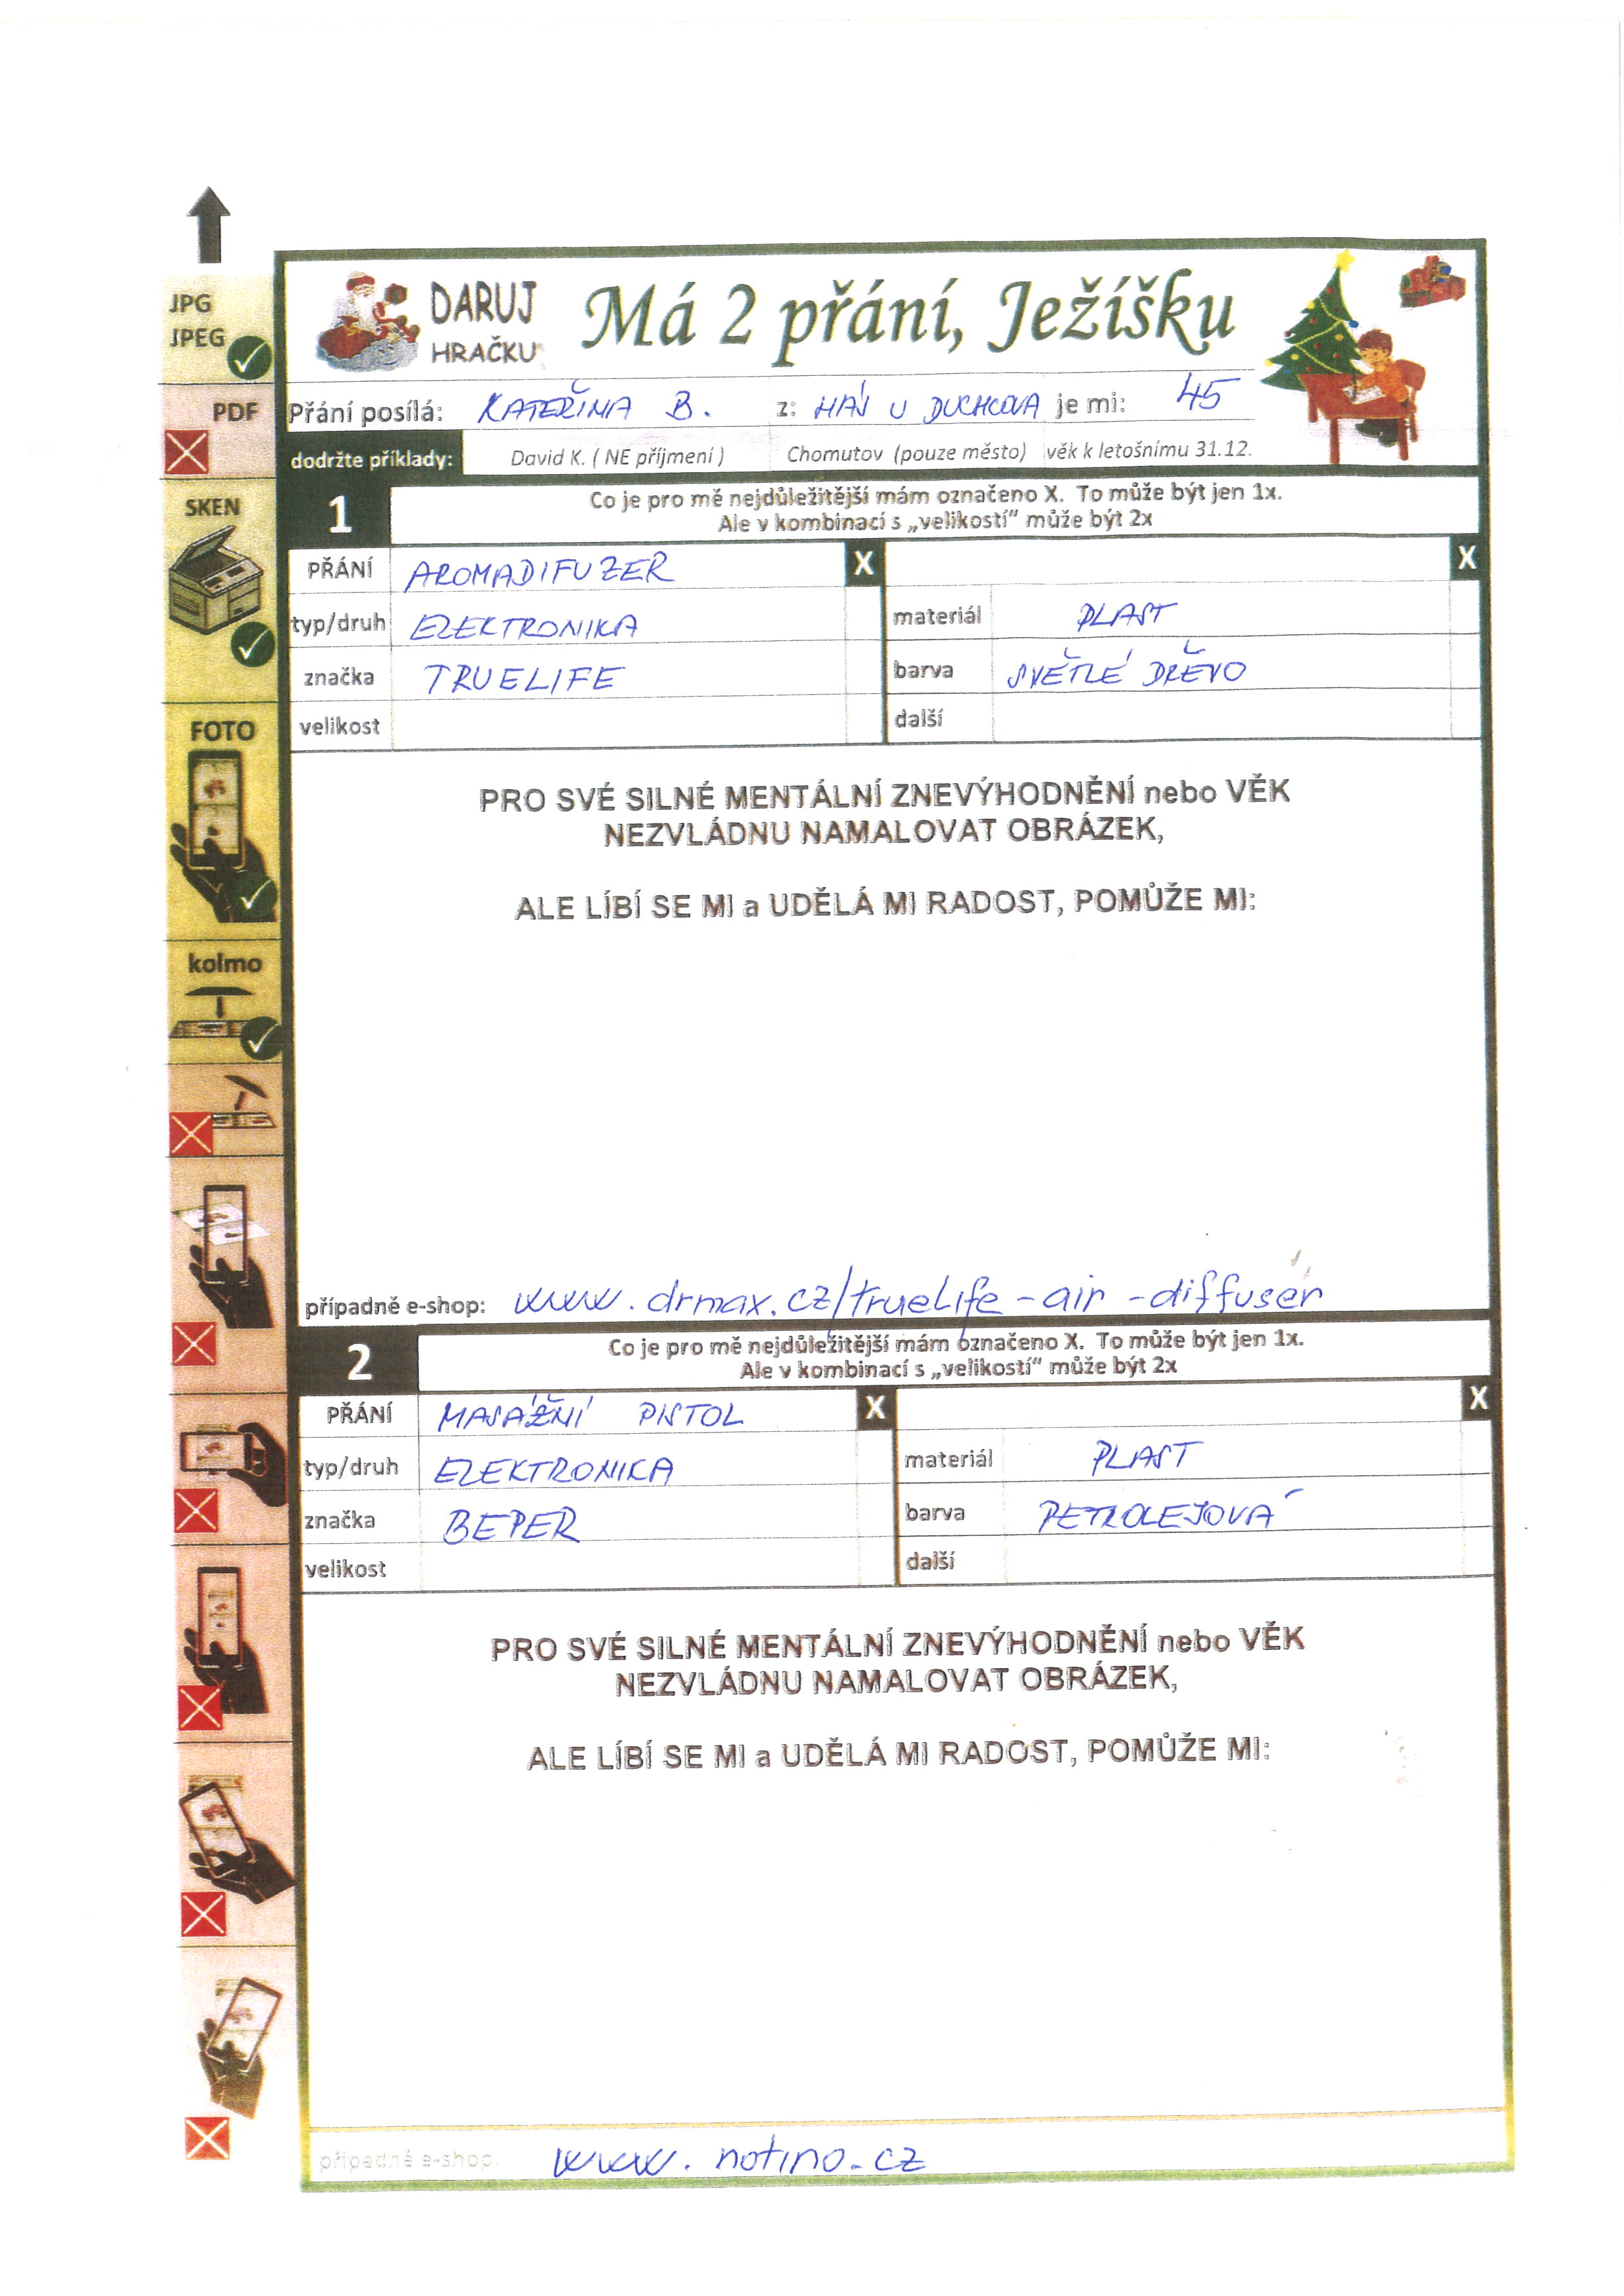 JPG
JPEG
PDF
SKEN
FOTO
kolmo
DARUJ
HRAČKU
Má 2 přání, Ježíšku
Přání posílá: KATEŘINA B. z: HÁJ U DUCHCOVA je mi: 45
dodržte příklady: David K. ( NE příjmení ) Chomutov (pouze město) věk k letošnímu 31.12.
1
Co je pro mě nejdůležitější mám označeno X. To může být jen 1x.
Ale v kombinací s „velikostí“ může být 2x
PŘÁNÍ AROMADIFUZER X X
typ/druh ELEKTRONIKA materiál PLAST
značka TRUELIFE barva SVĚTLÉ DŘEVO
velikost další
PRO SVÉ SILNÉ MENTÁLNÍ ZNEVÝHODNĚNÍ nebo VĚK
NEZVLÁDNU NAMALOVAT OBRÁZEK,
ALE LÍBÍ SE MI a UDĚLÁ MI RADOST, POMŮŽE MI:
případně e-shop: www.drmax.cz/truelife-air-diffuser
2
Co je pro mě nejdůležitější mám označeno X. To může být jen 1x.
Ale v kombinací s „velikostí“ může být 2x
PŘÁNÍ MASÁŽNÍ PISTOL X X
typ/druh ELEKTRONIKA materiál PLAST
značka BEPER barva PETROLEJOVÁ
velikost další
PRO SVÉ SILNÉ MENTÁLNÍ ZNEVÝHODNĚNÍ nebo VĚK
NEZVLÁDNU NAMALOVAT OBRÁZEK,
ALE LÍBÍ SE MI a UDĚLÁ MI RADOST, POMŮŽE MI:
případně e-shop: www.notino.cz